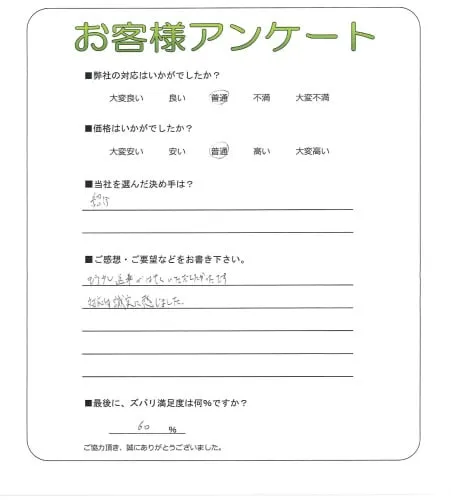 お客様アンケート
■弊社の対応はいかがでしたか？
大変良い 良い 普通 不満 大変不満
■価格はいかがでしたか？
大変安い 安い 普通 高い 大変高い
■当社を選んだ決め手は？
紹介
■ご感想・ご要望などをお書き下さい。
もう少し
対応は誠実に感じました。
■最後に、ズバリ満足度は何％ですか？
60 ％
ご協力頂き、誠にありがとうございました。